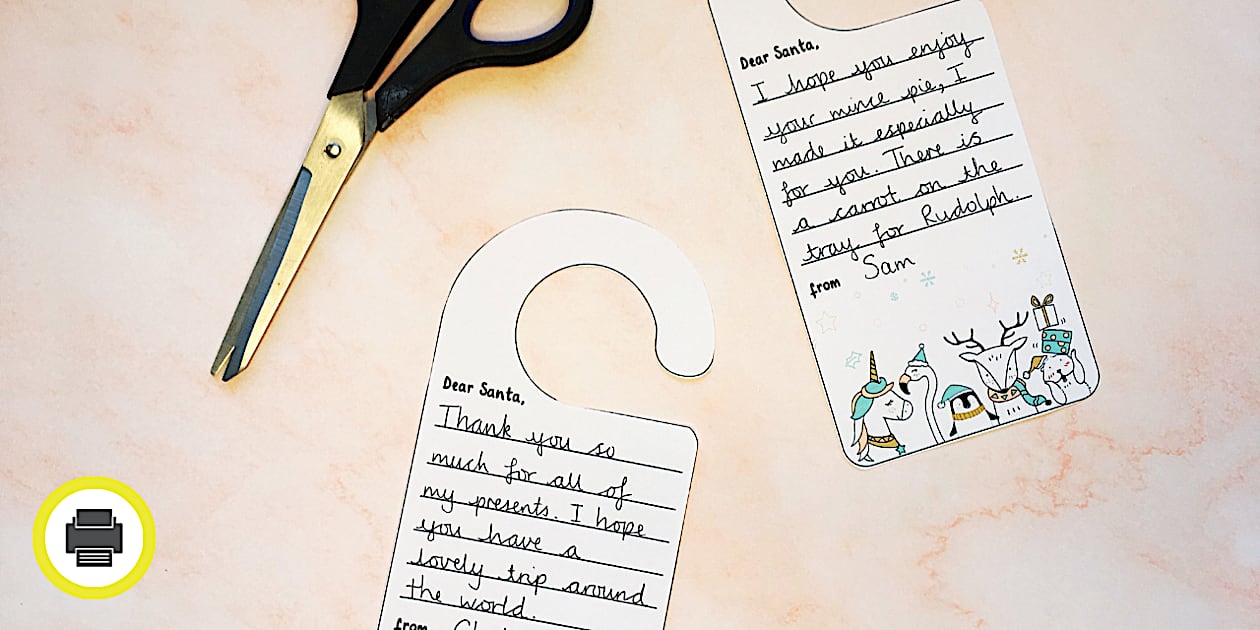 Dear Santa,
I hope you enjoy
your mince pie, I
made it especially
for you. There is
a carrot on the
tray for Rudolph.
from Sam
Dear Santa,
Thank you so
much for all of
my presents. I hope
you have a
lovely trip around
the world.
from